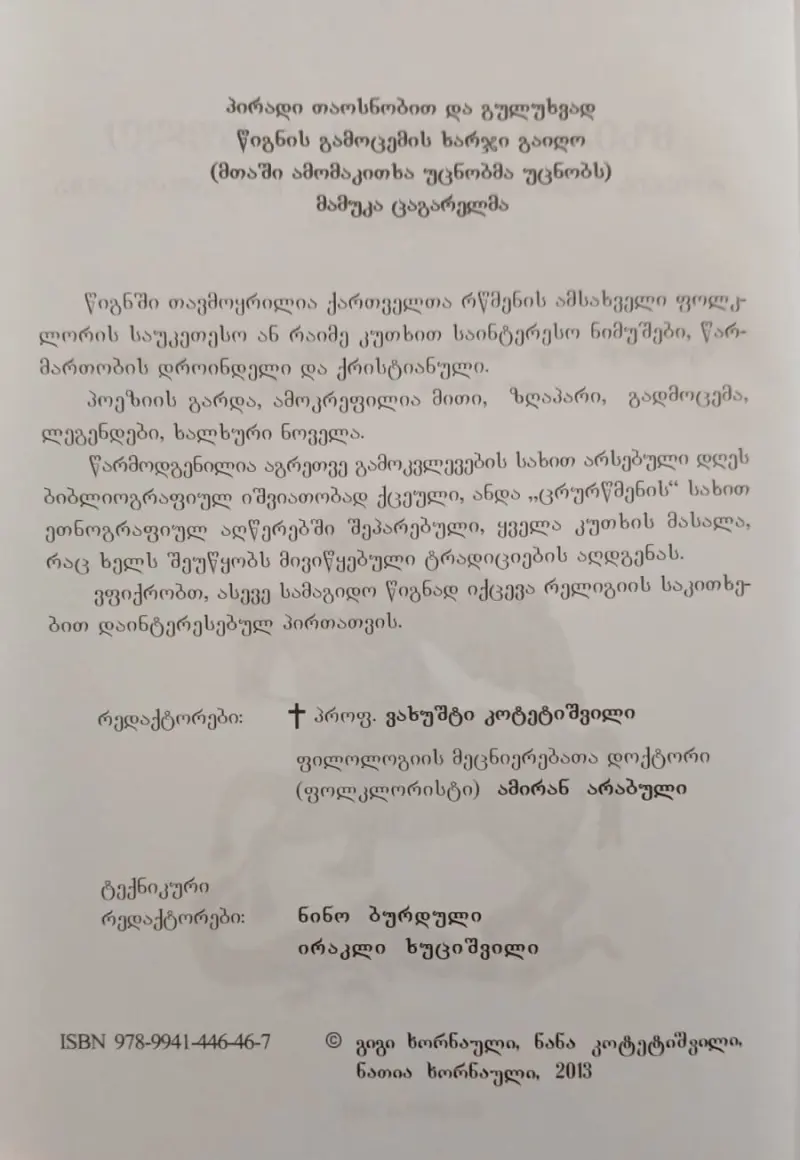 პირადი თაოსნობით და გულუხვად
წიგნის გამოცემის ხარჯი გაიღო
(მთაში ამომაკითხა უცნობმა უცნობს)
მამუკა ცაგარელმა
წიგნში თავმოყრილია ქართველთა რწმენის ამსახველი ფოლკ-
ლორის საუკეთესო ან რაიმე კუთხით საინტერესო ნიმუშები, წარ-
მართობის დროინდელი და ქრისტიანული.
პოეზიის გარდა, ამოკრეფილია მითი, ზღაპარი, გადმოცემა,
ლეგენდები, ხალხური ნოველა.
წარმოდგენილია აგრეთვე გამოკვლევების სახით არსებული დღეს
ბიბლიოგრაფიულ იშვიათობად ქცეული, ანდა „ცრურწმენის“ სახით
ეთნოგრაფიულ აღწერებში შეპარებული, ყველა კუთხის მასალა,
რაც ხელს შეუწყობს მივიწყებული ტრადიციების აღდგენას.
ვფიქრობთ, ასევე სამაგიდო წიგნად იქცევა რელიგიის საკითხე-
ბით დაინტერესებულ პირთათვის.
რედაქტორები: ✝ პროფ. ვახუშტი კოტეტიშვილი
ფილოლოგიის მეცნიერებათა დოქტორი
(ფოლკლორისტი) ამირან არაბული
ტექნიკური
რედაქტორები: ნინო ბურდული
ირაკლი ხუციშვილი
ISBN 978-9941-446-46-7 © გიგი ხორნაული, ნანა კოტეტიშვილი,
ნათია ხორნაული, 2013